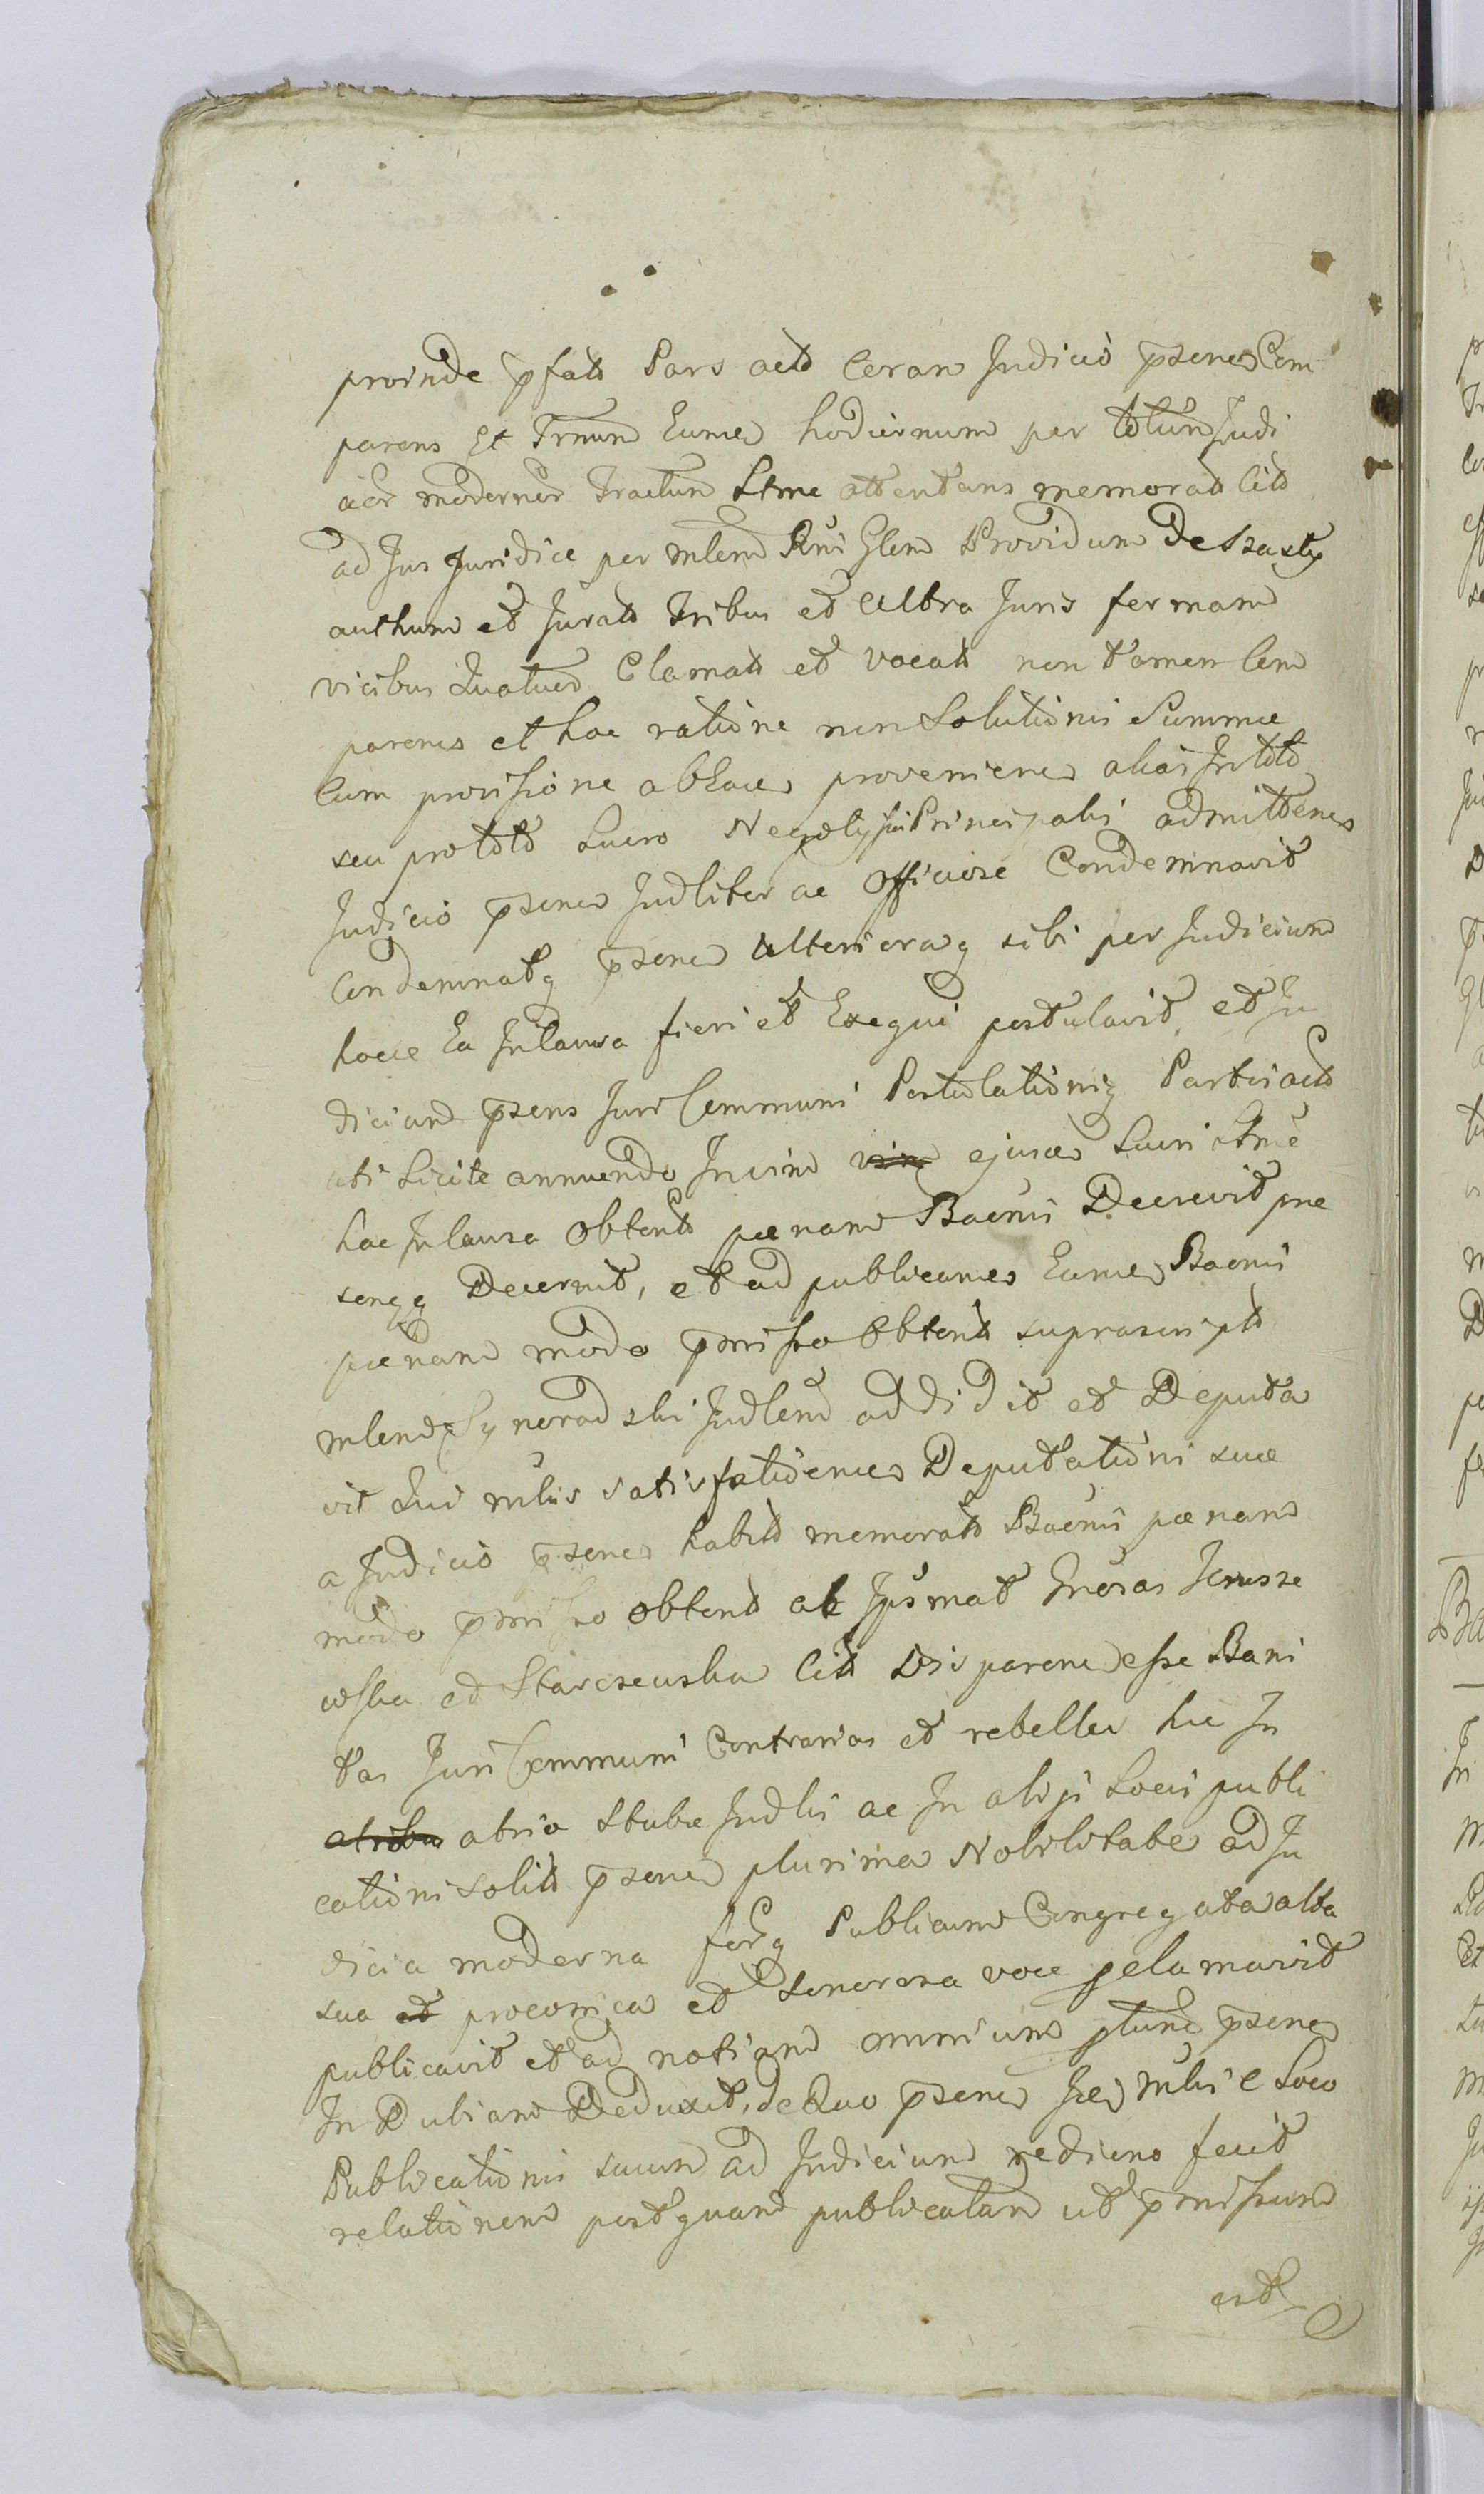 proinde pfatt Pars actt Coram Judicio psenes Com
parens Et Trnum Eumd hodiernum per totum Judi
cior modernor Tractum Ltme attentans memoratt Citt
ad Jus Juridice per mlem Rni Glem Providum
authum et Juratt Tribus et Ultra Juris formam
vicibus Quatuor Clamatt et vocatt non tamen Com
parenes et hac ratione non Solutionis Summae
Cum provisione abhaec proveniene alias In toto
seu pro toto Lucro Negotij sui Principalis admittenes
Judicio psene Judliter ac Officiose Condemnavit
Condemnatq psene Ulterioraq sibi per Judicium
hocce Ea In Causa fieri et Exequi postulavit et Ju
dicium psens Juri Communi Postulationiq Partis actt
uti Licite annuendo In vim vim ejusd Lucri Ltme
hac In Causa Obtentt paenam Baenis Decrevit prae
senqq Decernit, et ad publicanes Eamd Baenis
paenam modo pmisso Obtentt suprascriptt
mlem Judlem addidit et Deputa
vit Qui mlis satisfatienes Deputationi suae
a Judicio psene habitt memoratt Baenis paenam
modo pmisso obtentt ab Ipsmat Gnosas
et Starczewska Citt Disparene esse Bani
tas Juri Communi Contrarias et rebelles hic In
atribu atrio Stubae Judlis ac In alijs Locis publi
cationi Solitt psene plurima Nobilitate ad Ju
dicia moderna forq Publicum Congregata alta
sua et praeconica et Sonorosa voce pclamavit
publicavit et ad notiam omnium ptum psene
In Dubiam Deduxit, de Quo psene Jd mlis e Loco
Publicationis suum ad Judicium rediens fecit
relationem postquam publicatam ut pmissum
est